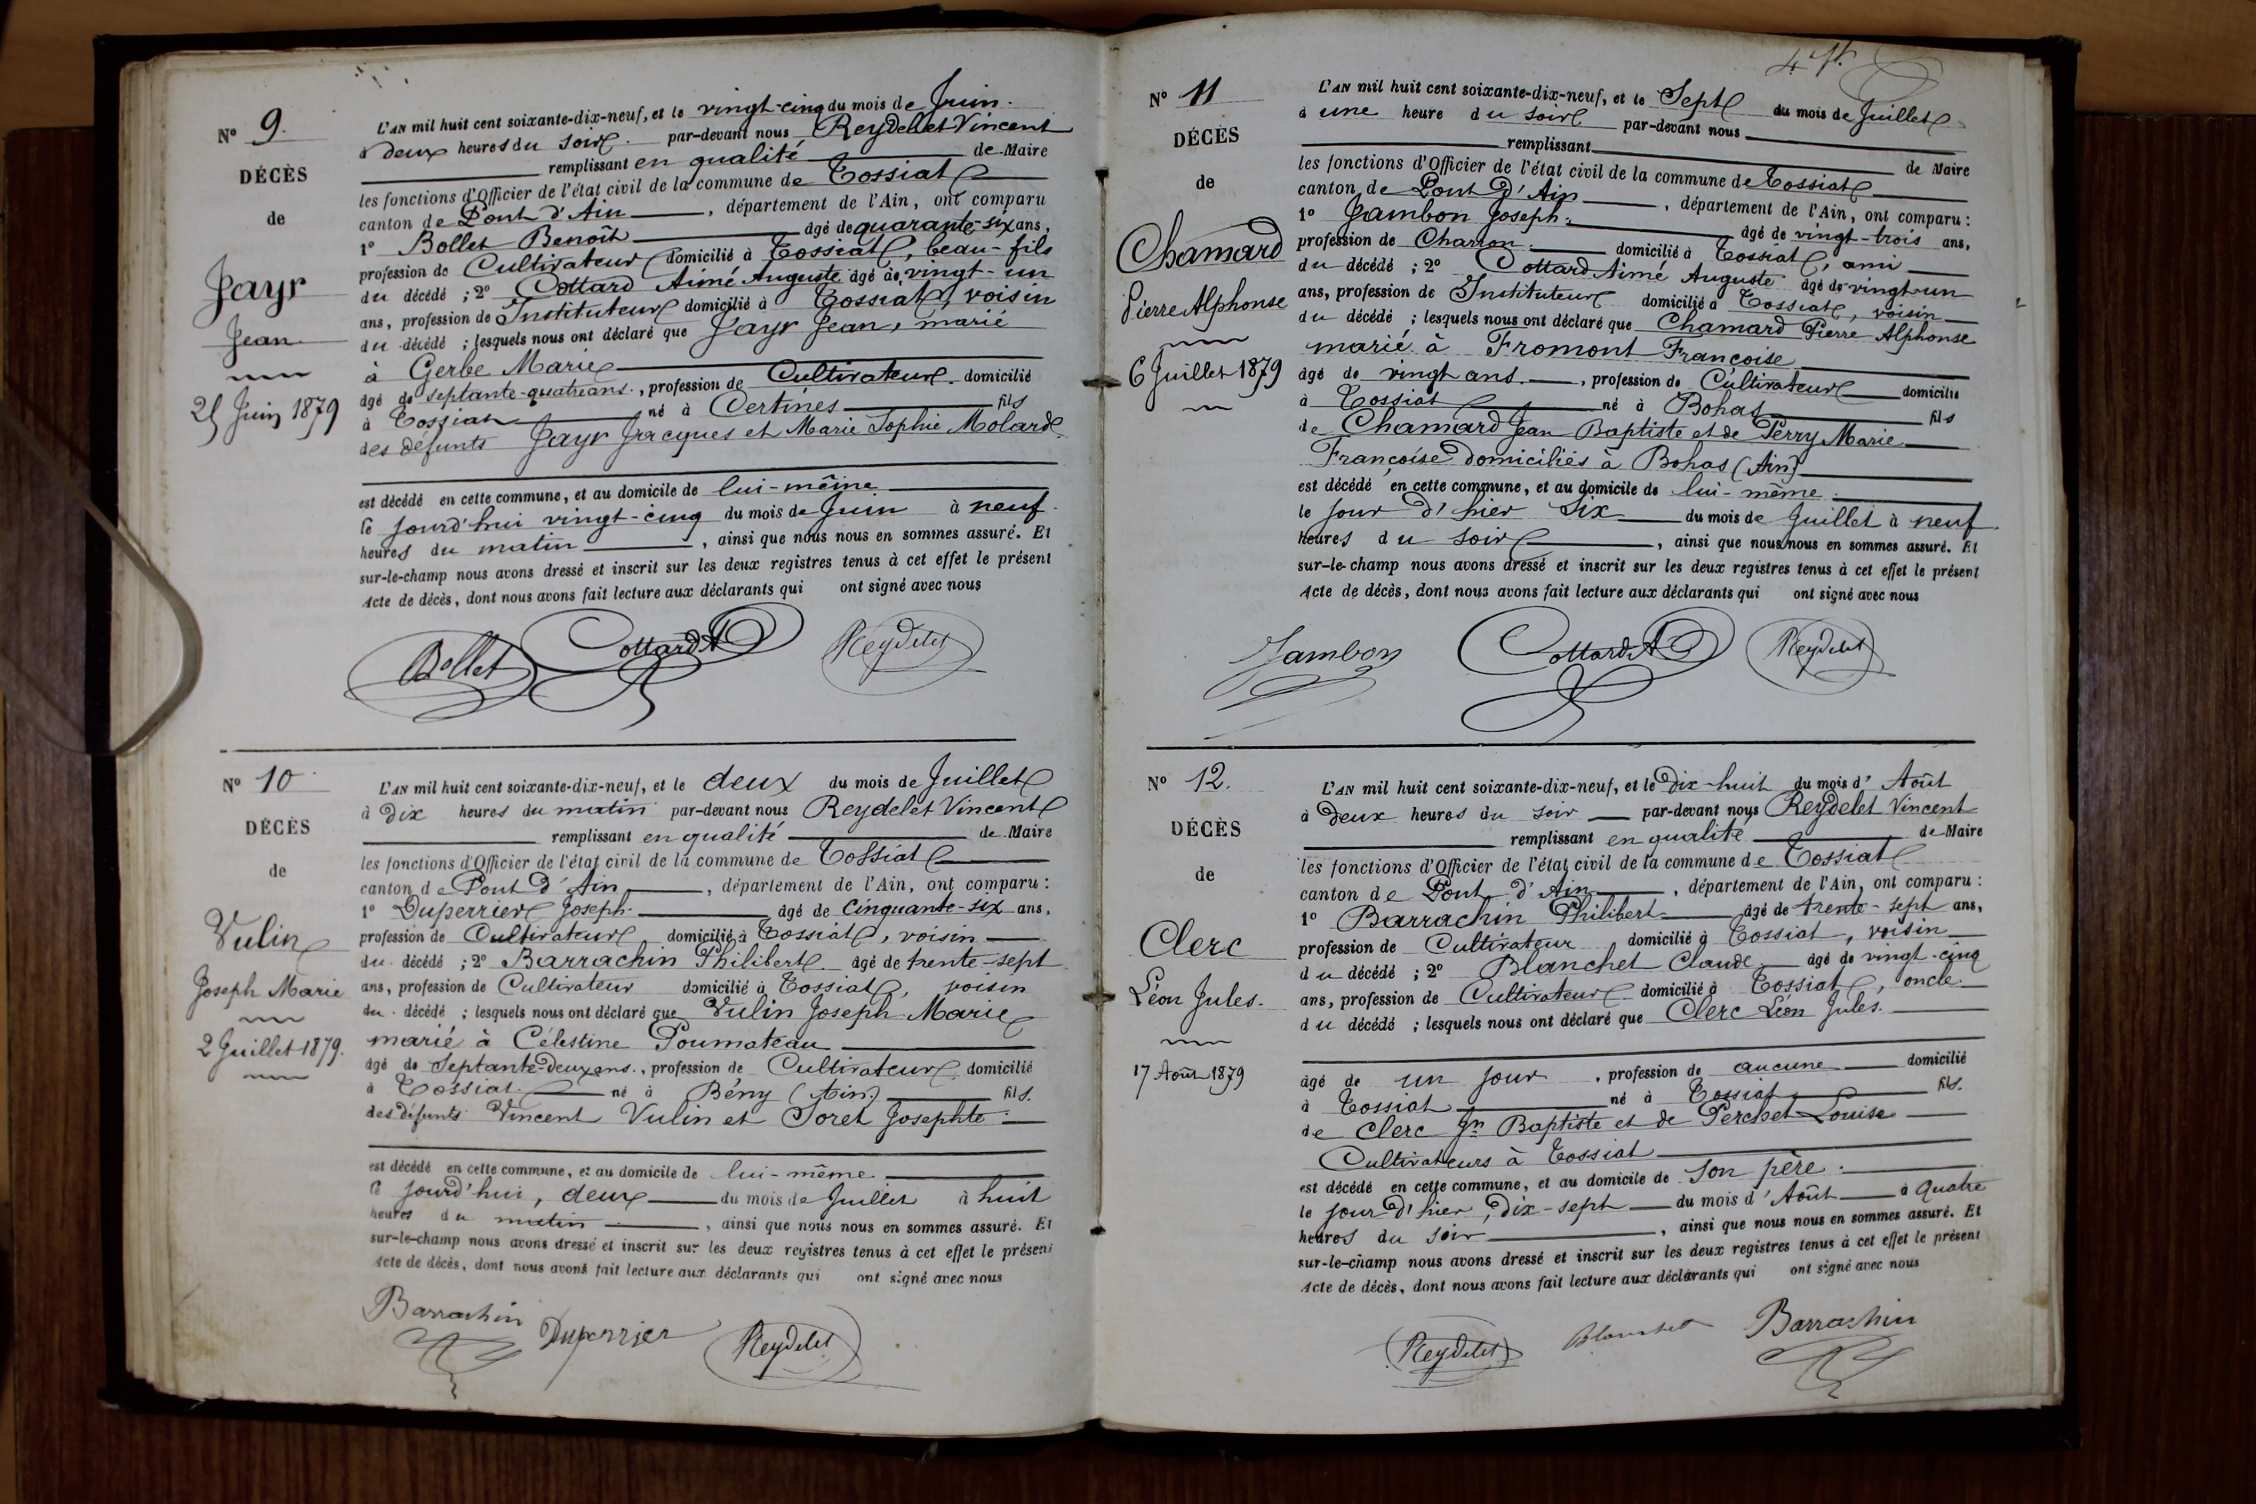 Nº 9.
DÉCÈS
de
Jayr
Jean
25 Juin 1879
L'AN mil huit cent soixante-dix-neuf, et le vingt-cinq du mois de Juin
à deux heures du soir par-devant nous Reydelet Vincent
remplissant en qualité de Maire
les fonctions d'Officier de l'état civil de la commune de Tossiat
canton de Pont d'Ain, département de l'Ain, ont comparu
1º Bollet Benoît âgé de quarante-six ans,
profession de Cultivateur domicilié à Tossiat, beau-fils
du décédé ; 2º Cottard Aimé Auguste âgé de vingt-un
ans, profession de Instituteur domicilié à Tossiat, voisin
du décédé ; lesquels nous ont déclaré que Jayr Jean, marié
à Gerbe Marie
âgé de septante-quatre ans, profession de Cultivateur domicilié
à Tossiat né à Certines fils
des défunts Jayr Jacques et Marie Sophie Molard
est décédé en cette commune, et au domicile de lui-même
ce jourd'hui vingt-cinq du mois de Juin à neuf
heures du matin, ainsi que nous nous en sommes assuré. Et
sur-le-champ nous avons dressé et inscrit sur les deux registres tenus à cet effet le présent
Acte de décès, dont nous avons fait lecture aux déclarants qui ont signé avec nous
Bollet Cottard A Reydelet
Nº 10
DÉCÈS
de
Vulin
Joseph Marie
2 Juillet 1879.
L'AN mil huit cent soixante-dix-neuf, et le deux du mois de Juillet
à dix heures du matin par-devant nous Reydelet Vincent
remplissant en qualité de Maire
les fonctions d'Officier de l'état civil de la commune de Tossiat
canton de Pont d'Ain, département de l'Ain, ont comparu :
1º Duperrier Joseph âgé de cinquante-six ans,
profession de Cultivateur domicilié à Tossiat, voisin
du décédé ; 2º Barrachin Philibert âgé de trente-sept
ans, profession de Cultivateur domicilié à Tossiat, voisin
du décédé ; lesquels nous ont déclaré que Vulin Joseph Marie
marié à Célestine Poumateau
âgé de septante-deux ans, profession de Cultivateur domicilié
à Tossiat né à Bény (Ain) fils
des défunts Vincent Vulin et Soret Josephte
est décédé en cette commune, et au domicile de lui-même
ce jourd'hui, deux du mois de Juillet à huit
heures du matin, ainsi que nous nous en sommes assuré. Et
sur-le-champ nous avons dressé et inscrit sur les deux registres tenus à cet effet le présent
Acte de décès, dont nous avons fait lecture aux déclarants qui ont signé avec nous
Barrachin Duperrier Reydelet
Nº 11
DÉCÈS
de
Chamard
Pierre Alphonse
6 Juillet 1879
L'AN mil huit cent soixante-dix-neuf, et le Sept du mois de Juillet
à une heure du soir par-devant nous
remplissant de Maire
les fonctions d'Officier de l'état civil de la commune de Tossiat
canton de Pont d'Ain, département de l'Ain, ont comparu :
1º Jambon Joseph âgé de vingt-trois ans,
profession de Charron domicilié à Tossiat, ami
du décédé ; 2º Cottard Aimé Auguste âgé de vingt-un
ans, profession de Instituteur domicilié à Tossiat, voisin
du décédé ; lesquels nous ont déclaré que Chamard Pierre Alphonse
marié à Fromont Françoise
âgé de vingt ans, profession de Cultivateur domicilié
à Tossiat né à Bohas fils
de Chamard Jean Baptiste et de Perry Marie
Françoise domiciliés à Bohas (Ain)
est décédé en cette commune, et au domicile de lui-même
le jour d'hier six du mois de Juillet à neuf
heures du soir, ainsi que nous nous en sommes assuré. Et
sur-le-champ nous avons dressé et inscrit sur les deux registres tenus à cet effet le présent
Acte de décès, dont nous avons fait lecture aux déclarants qui ont signé avec nous
Jambon Cottard A Reydelet
Nº 12.
DÉCÈS
de
Clerc
Léon Jules.
17 Août 1879
L'AN mil huit cent soixante-dix-neuf, et le dix-huit du mois d'Août
à deux heures du soir par-devant nous Reydelet Vincent
remplissant en qualité de Maire
les fonctions d'Officier de l'état civil de la commune de Tossiat
canton de Pont d'Ain, département de l'Ain, ont comparu :
1º Barrachin Philibert âgé de trente-sept ans,
profession de Cultivateur domicilié à Tossiat, voisin
du décédé ; 2º Blanchet Claude âgé de vingt-cinq
ans, profession de Cultivateur domicilié à Tossiat, oncle
du décédé ; lesquels nous ont déclaré que Clerc Léon Jules.
âgé de un jour, profession de aucune domicilié
à Tossiat né à Tossiat fils.
de Clerc Jn Baptiste et de Perchet Louise
Cultivateurs à Tossiat
est décédé en cette commune, et au domicile de son père.
le jour d'hier, dix-sept du mois d'Août à quatre
heures du soir, ainsi que nous nous en sommes assuré. Et
sur-le-champ nous avons dressé et inscrit sur les deux registres tenus à cet effet le présent
Acte de décès, dont nous avons fait lecture aux déclarants qui ont signé avec nous
Reydelet Blanchet Barrachin